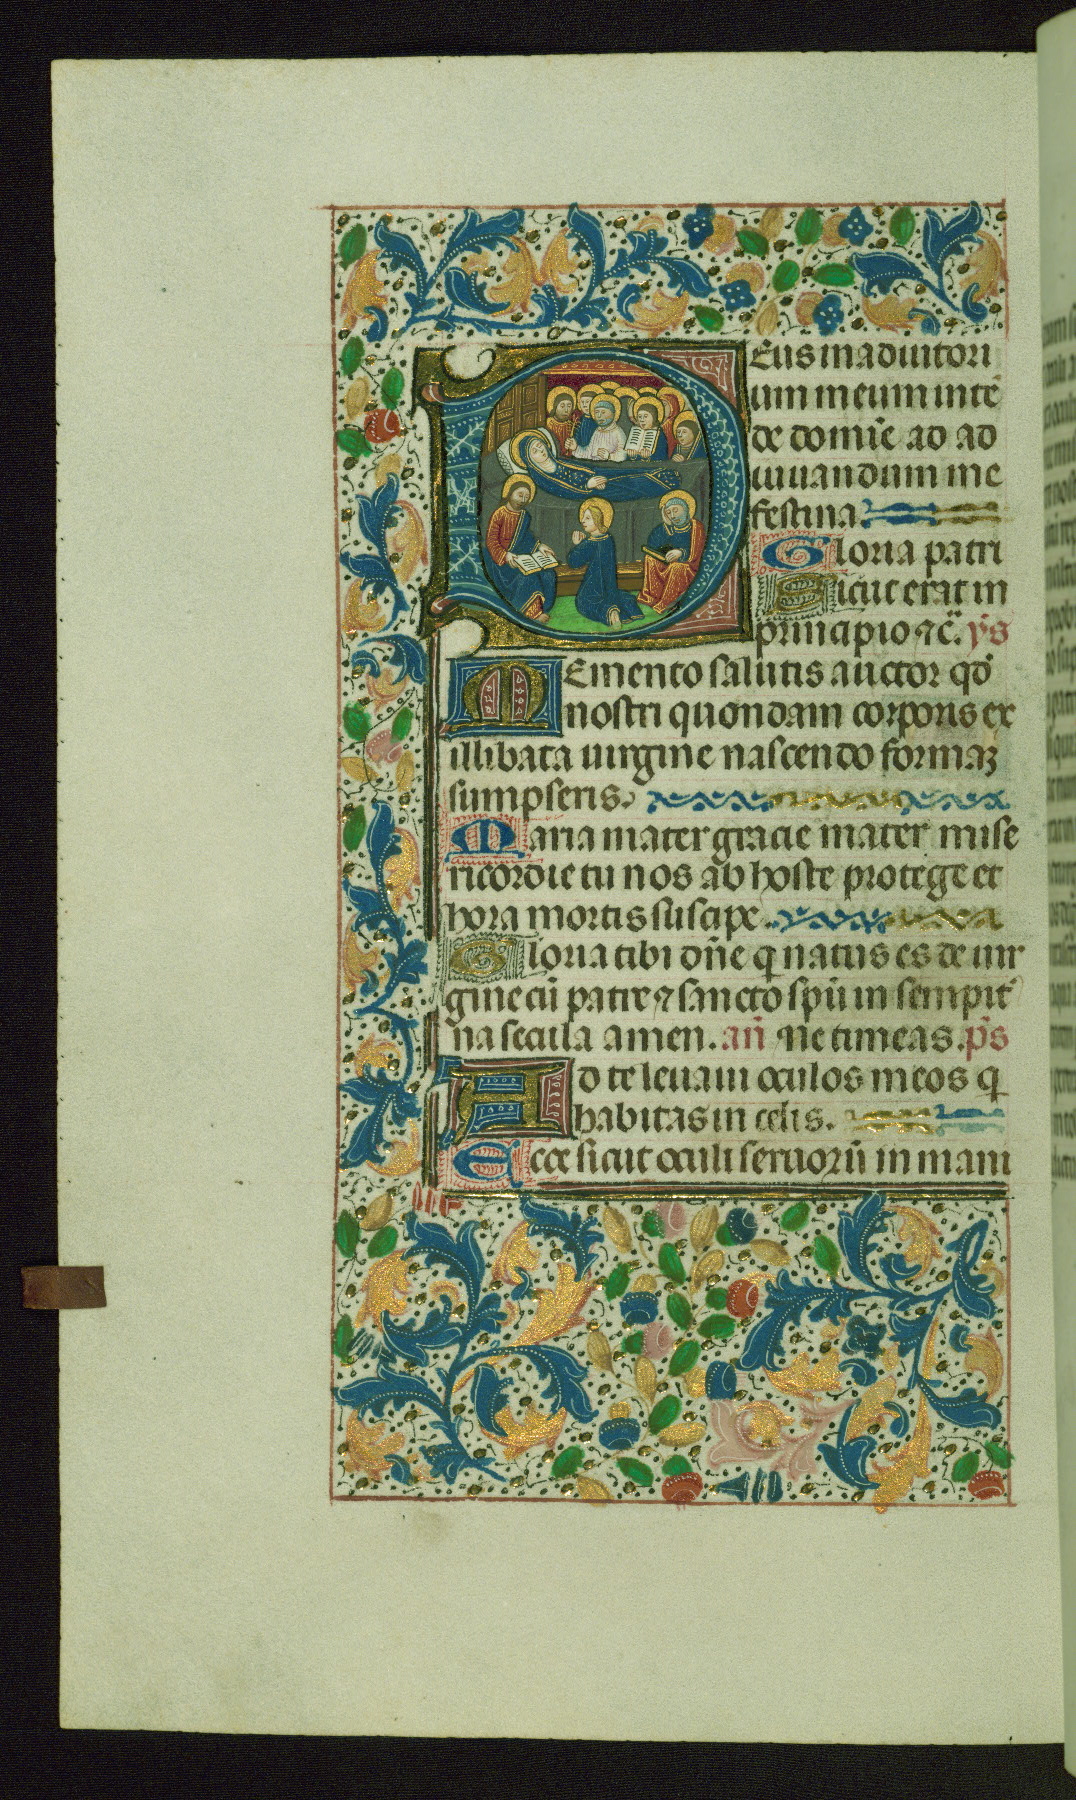 Deus in adiutori
um meum inte
de domĩe ad ad
iuuandum me
festina
Gloria patri
Sicut erat in
principio ⁊c̃. ẏs
Memento salutis auctor qđ
nostri quondam corporis ex
illibata uirgine nascendo formaꝫ
sumpseris.
Maria mater gracie mater mise
ricordie tu nos ab hoste protege et
hora mortis suscipe.
Gloria tibi dñe q natus es de uir
gine cũ patre ⁊ sancto spũ in sempit̾
na secula amen. añ Ne timeas. p̃s
Ad te leuaui oculos meos q
habitas in celis.
Ecce sicut oculi seruorũ in mani